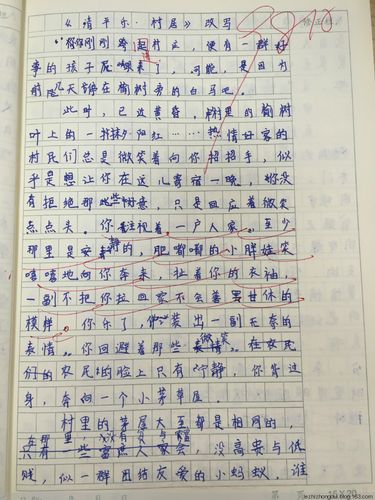 《清平乐·村居》改写
你刚刚跨起村庄，便有一群好
事的孩子尾来了，可能，是因为
前几天绑在榆树旁的白马吧。
此时，已边黄昏，树里的榆树
叶上的一抹抹夕阳红……热情好客的
村民们总是微笑着向你招招手，似
乎是想让你在这儿寄宿一晚，你没
有拒绝那些好意，只是回应着微笑
点点头。你注视着一户人家，至少
那里是安静的，肥嘟嘟的小胖娃笑
嘻嘻地向你奔来，扯着你的衣袖，
一副不把你拉回家不会善罢甘休的
模样。你乐了，你装出一副无奈的
表情。你回避着那些微笑。在农民
们的脸上只有宁静，你背过
身，奔向一个小茅草屋。
村里的茅屋大至都是相同的，
没高贵与低
贱，似一群团结友爱的小蚂蚁，谁